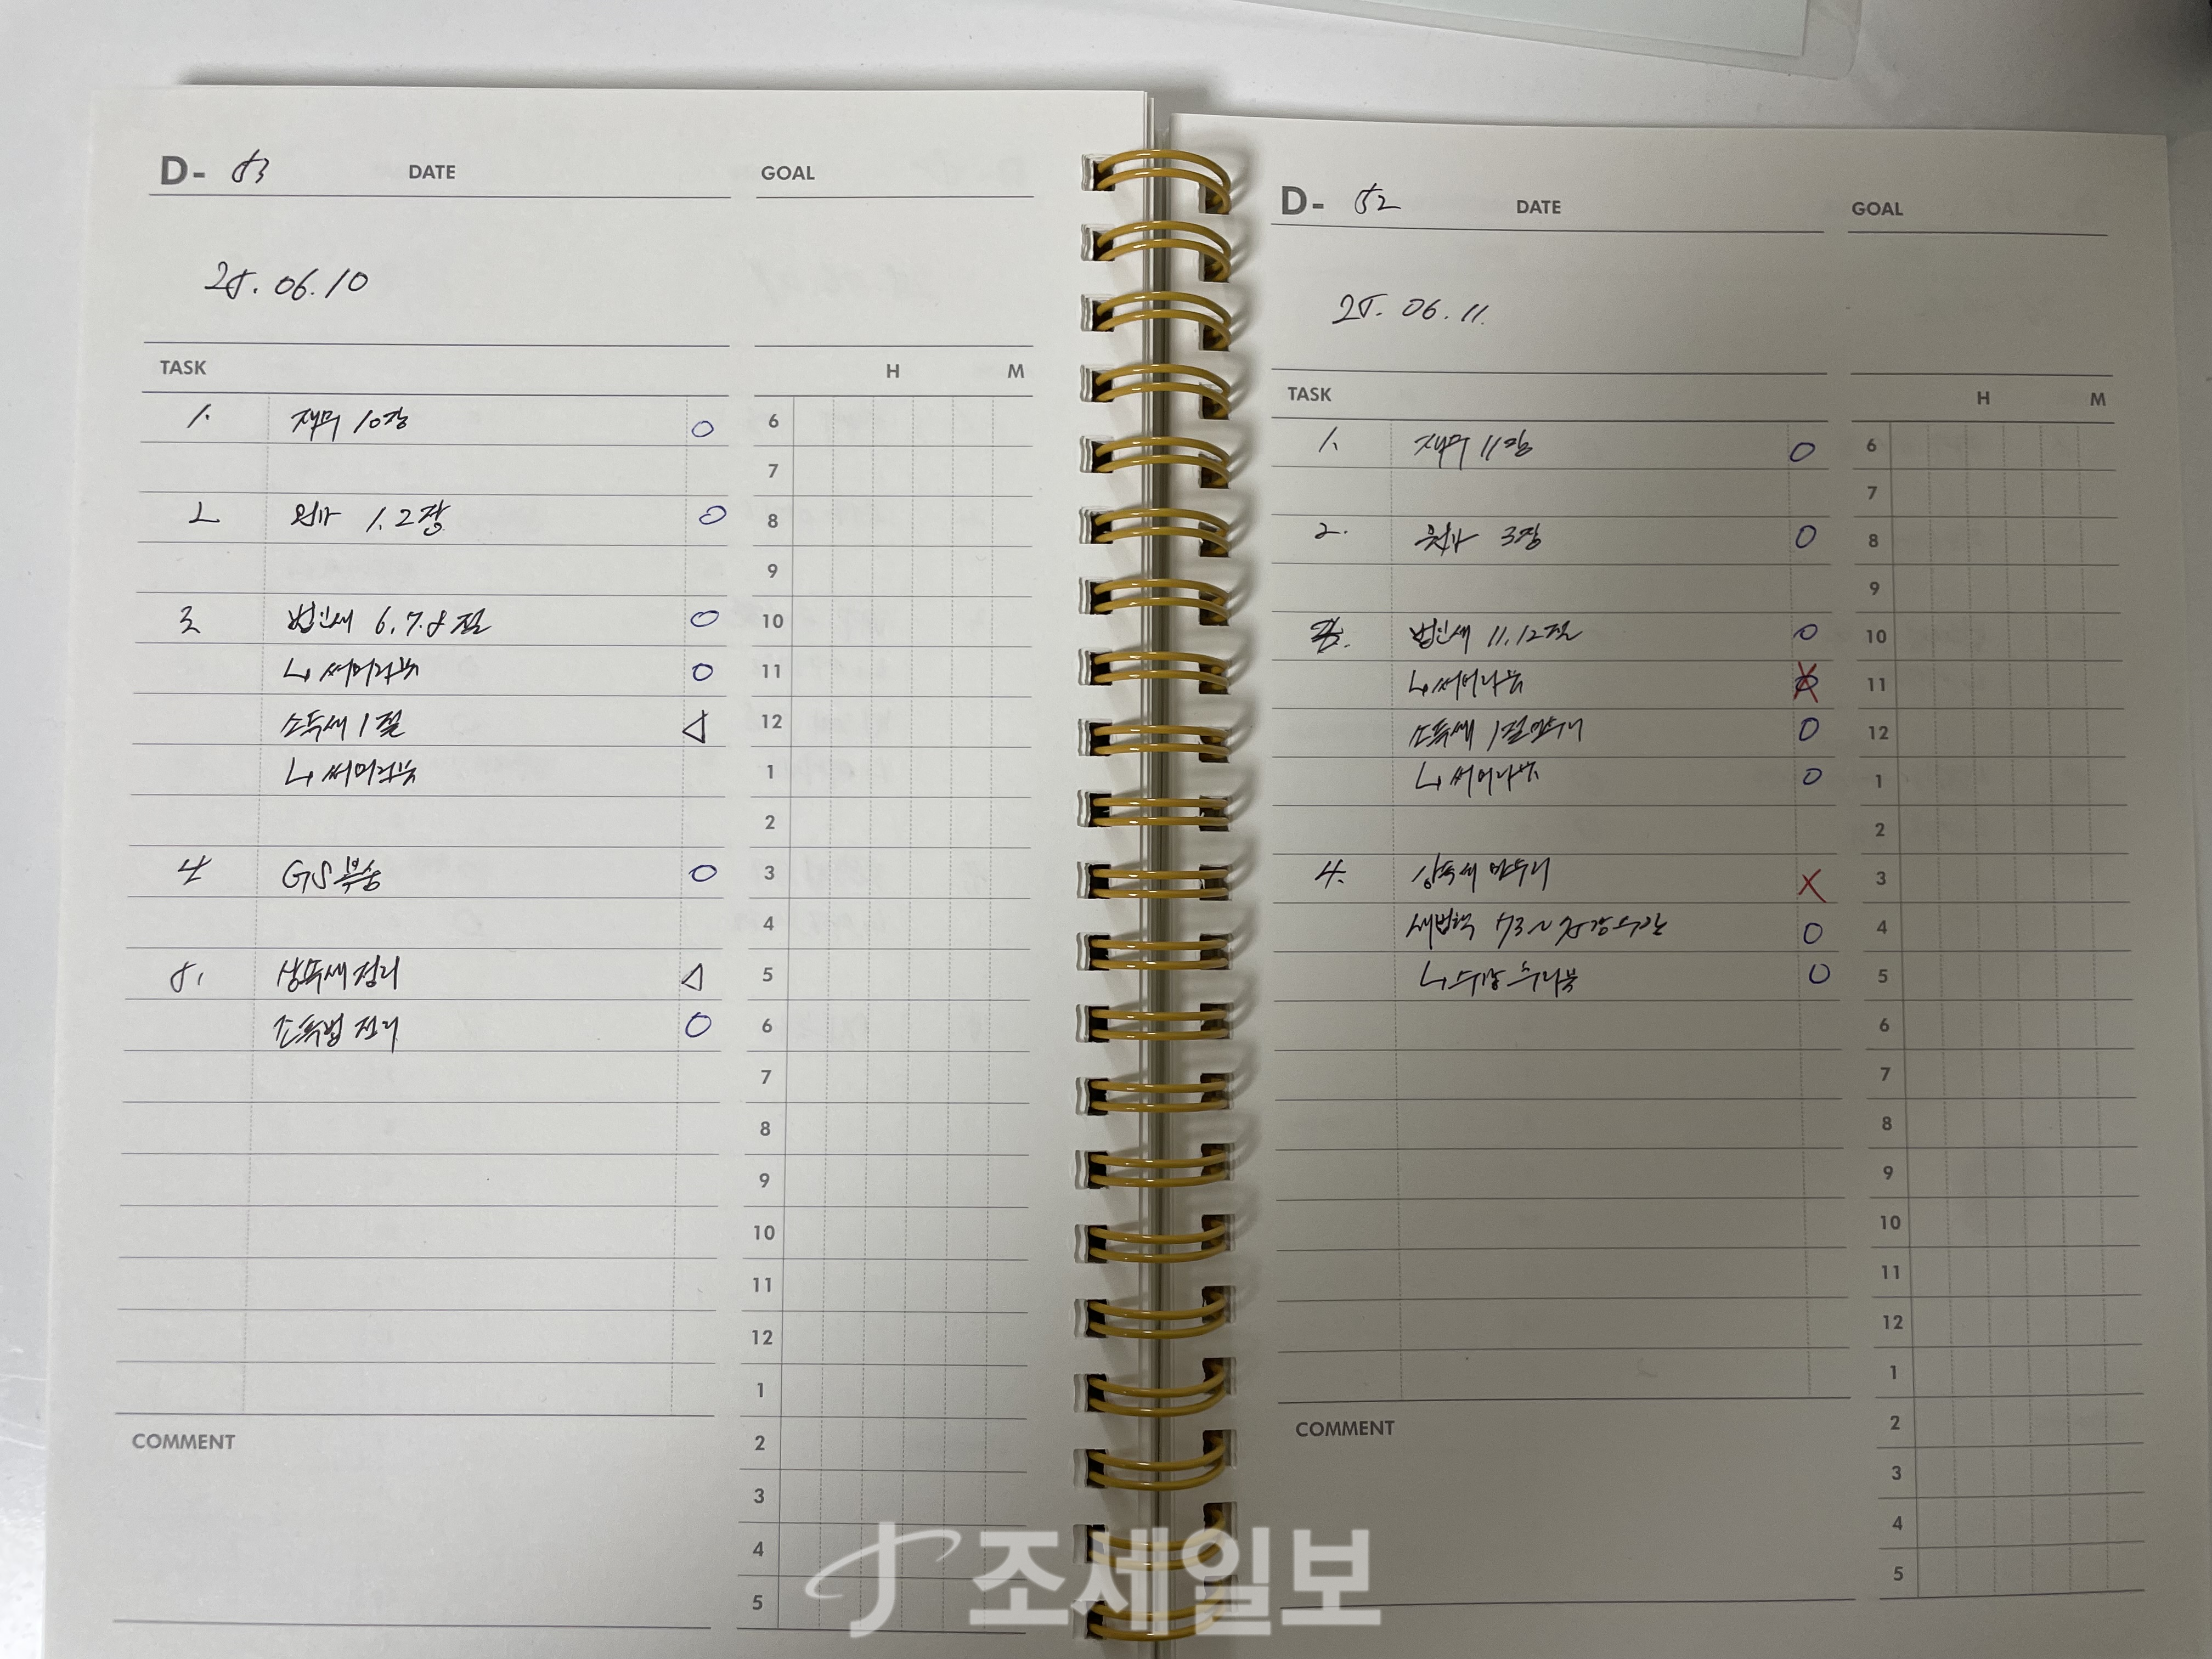 D- 53 DATE GOAL
25. 06. 10
TASK H M
1. 재무 10장 O
2 원가 1. 2장 O
3 법인세 6. 7. 8절 O
↳ 써머리북 O
소득세 1절 △
↳ 써머리북
4 GS 복습 O
5. 상득세 정리 △
소득법 정리 O
6
7
8
9
10
11
12
1
2
3
4
5
6
7
8
9
10
11
12
1
2
3
4
5
COMMENT
D- 52 DATE GOAL
25. 06. 11.
TASK H M
1. 재무 11장 O
2. 원가 3장 O
3. 법인세 11. 12절 O
↳ 써머리북 X
소득세 1절 O
↳ 써머리북 O
4. X
세법학 O
↳ O
6
7
8
9
10
11
12
1
2
3
4
5
6
7
8
9
10
11
12
1
2
3
4
5
COMMENT
조세일보